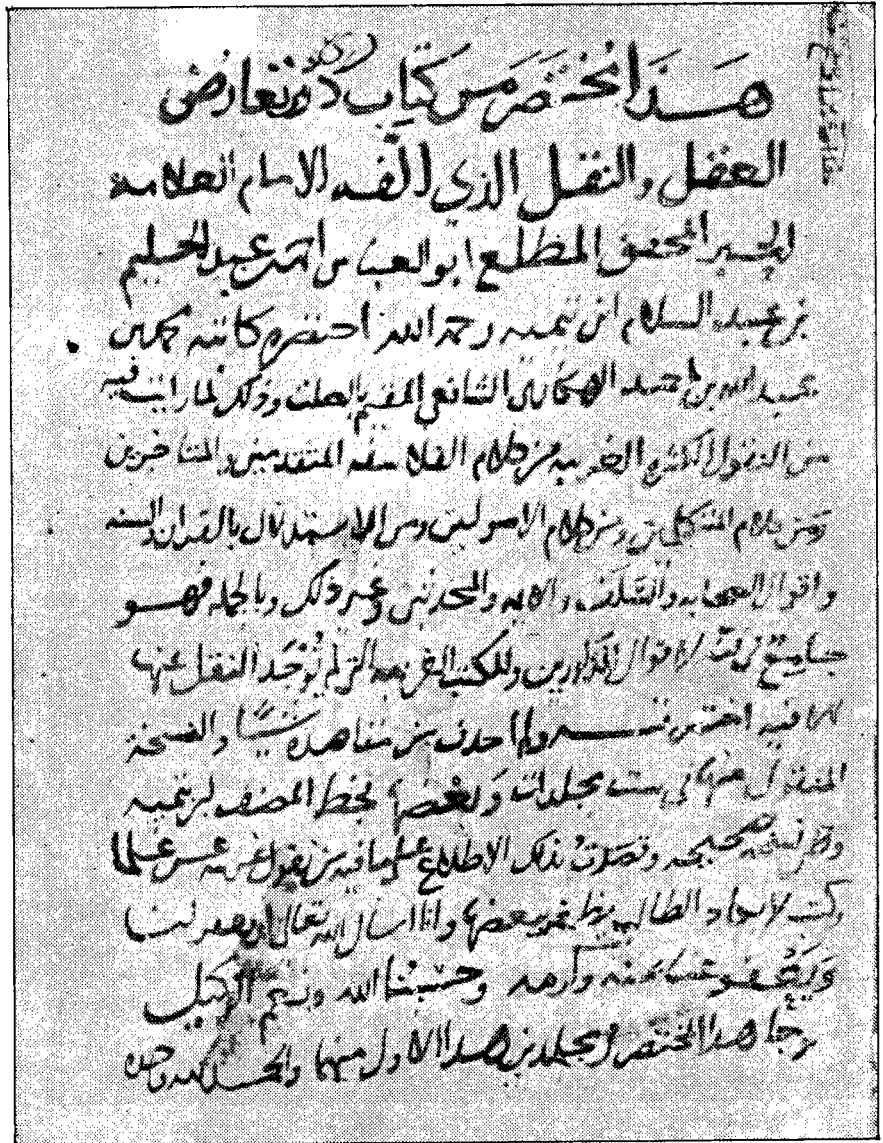 هذا مختصر من كتاب درء تعارض
العقل والنقل الذي الفه الامام العلامه
الحبر المحقق المطلع ابو العباس احمد بن عبد الحليم
بن عبد السلام ابن تيميه رحمه الله اختصره كاتبه محمد بن
عبد الله بن احمد الهكاري الشافعي المقيم بالصلت وذلك لما رايت فيه
من النقول الكثيره الغريبه من كلام الفلاسفه المتقدمين والمتاخرين
ومن كلام المتكلمين ومن كلام الاصوليين ومن الاستدلال بالقران والسنه
واقوال الصحابه والسلف والايمه والمحدثين وغير ذلك وبالجمله فهو
جامع لاقوال المذكورين وللكتب الغريبه التي لم يوجد النقل عنها
ولم احذف من مقاصده شيئا والنسخة
المنقول منها في ست مجلدات وبعضها بخط المصنف ابن تيميه
وهي نسخه صحيحه وقصدت بذلك الاطلاع على ما فيه من نقول غريبه
الطالب يظفر ببعضها وانا اسال الله تعالى ان يغفر لنا
ويعفو عنا بمنه وكرمه وحسبنا الله ونعم الوكيل
وجا هذا المختصر في مجلدين هذا الاول منهما والحمد لله وحده